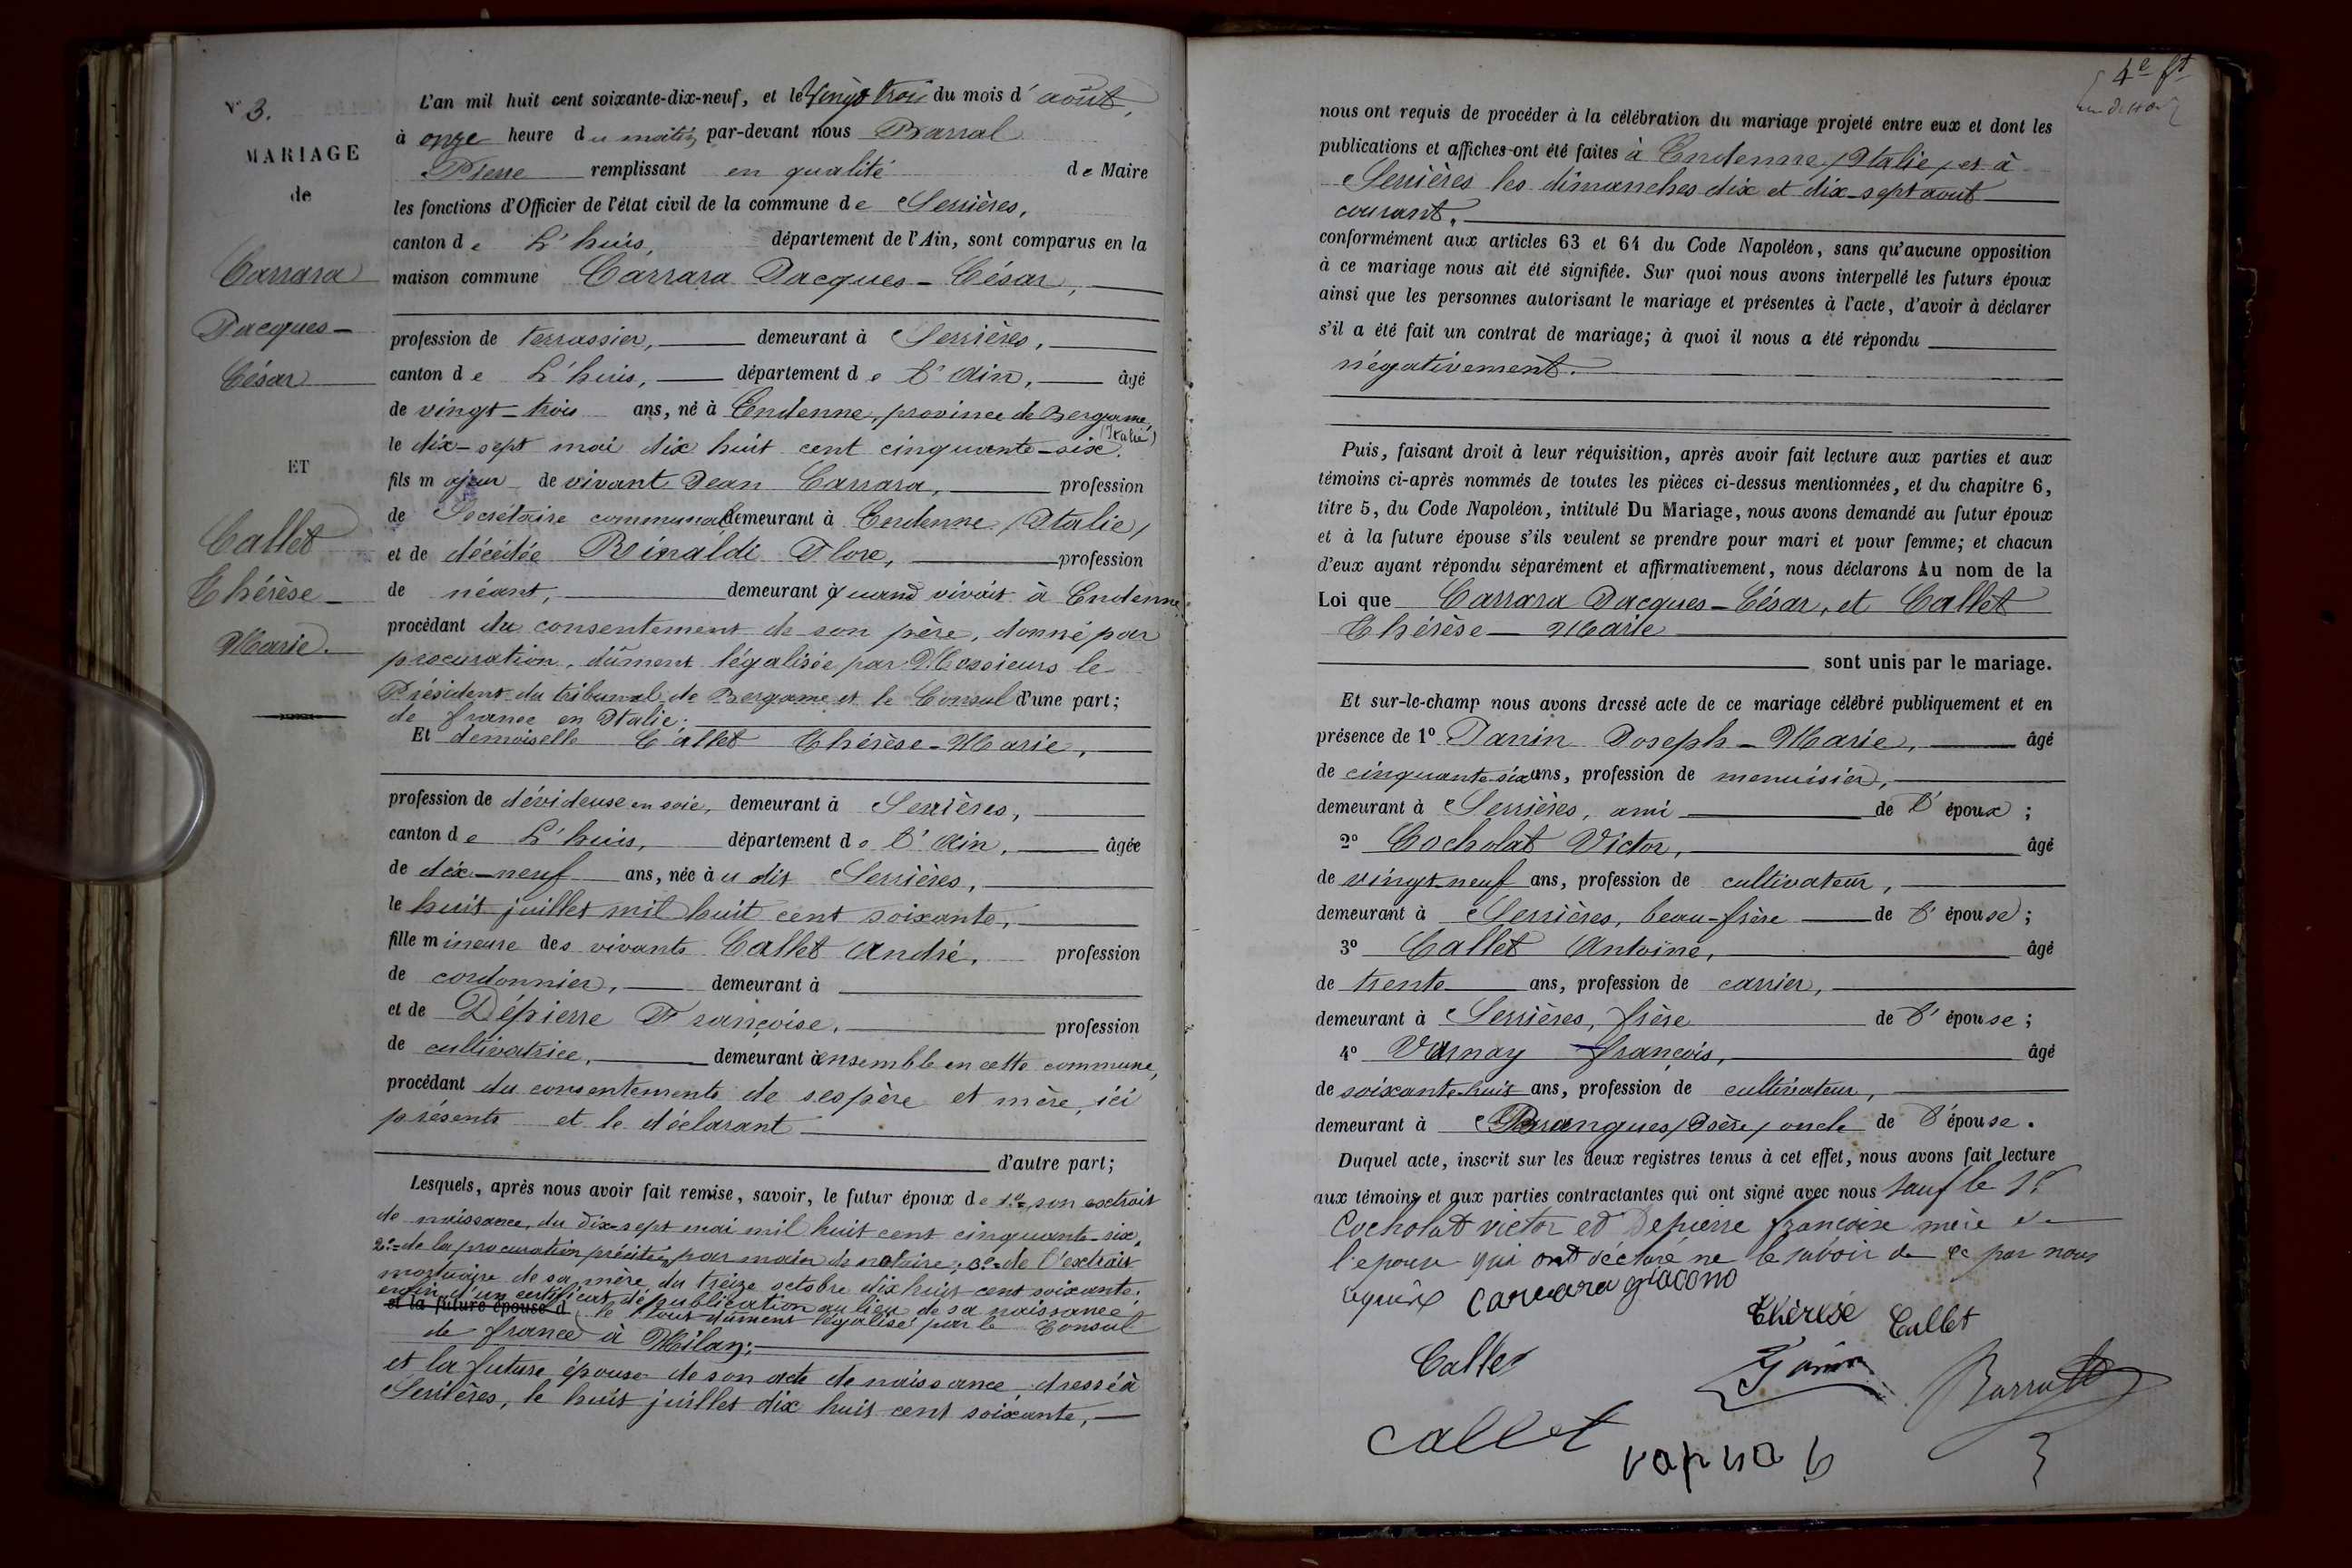 N° 3.
MARIAGE
de
Carrara
Jacques-
César
ET
Callet
Thérèse-
Marie.
L'an mil huit cent soixante-dix-neuf, et le Vingt trois du mois d'août,
à onze heure du matin, par-devant nous Barral
Pierre remplissant en qualité de Maire
les fonctions d'Officier de l'état civil de la commune de Serrières,
canton de L'huis, département de l'Ain, sont comparus en la
maison commune Carrara Jacques-César,
profession de terrassier, demeurant à Serrières,
canton de L'huis, département de l'Ain, âgé
de vingt-trois ans, né à Endenne, province de Bergame,
(Italie)
le dix-sept mai dix huit cent cinquante-six.
fils majeur de vivant Jean Carrara, profession
de Secrétaire communal demeurant à Cendenne (Italie)
et de décédée Rinaldi Flore, profession
de néant, demeurant à quand vivait à Endenne,
procédant du consentement de son père, donné par
procuration, dûment légalisée par Messieurs le
Président du tribunal de Bergame et le Consul d'une part;
de france en Italie.
Et demoiselle Callet Thérèse-Marie,
profession de dévideuse en soie, demeurant à Serrières,
canton de L'huis, département de l'Ain, âgée
de dix-neuf ans, née à u dit Serrières,
le huit juillet mil huit cent soixante,
fille mineure des vivants Callet André, profession
de cordonnier, demeurant à
et de Dépierre Françoise, profession
de cultivatrice, demeurant à ensemble en cette commune,
procédant du consentements de ses père et mère, ici
présents et le déclarant
d'autre part;
Lesquels, après nous avoir fait remise, savoir, le futur époux de 1°= son extrait
de naissance, du dix-sept mai mil huit cent cinquante-six,
2°= de la procuration précitée, par main de notaire; 3°= de l'extrait
mortuaire de sa mère, du treize octobre dix huit cent soixante.
enfin d'un certificat de publication au lieu de sa naissance
et la future épouse d le tout dûment légalisé par le Consul
de france à Milan;
et la future épouse de son acte de naissance, dressé à
Serrières, le huit juillet dix huit cent soixante,
4e ft
nous ont requis de procéder à la célébration du mariage projeté entre eux et dont les
publications et affiches ont été faites à Endenne (Italie) et à
Serrières les dimanches dix et dix-sept aout
courant.
conformément aux articles 63 et 64 du Code Napoléon, sans qu'aucune opposition
à ce mariage nous ait été signifiée. Sur quoi nous avons interpellé les futurs époux
ainsi que les personnes autorisant le mariage et présentes à l'acte, d'avoir à déclarer
s'il a été fait un contrat de mariage; à quoi il nous a été répondu
négativement.
Puis, faisant droit à leur réquisition, après avoir fait lecture aux parties et aux
témoins ci-après nommés de toutes les pièces ci-dessus mentionnées, et du chapitre 6,
titre 5, du Code Napoléon, intitulé Du Mariage, nous avons demandé au futur époux
et à la future épouse s'ils veulent se prendre pour mari et pour femme; et chacun
d'eux ayant répondu séparément et affirmativement, nous déclarons Au nom de la
Loi que Carrara Jacques-César, et Callet
Thérèse-Marie
sont unis par le mariage.
Et sur-le-champ nous avons dressé acte de ce mariage célébré publiquement et en
présence de 1° Janin Joseph-Marie, âgé
de cinquante-six ans, profession de menuisier,
demeurant à Serrières, ami de l'époux;
2° Cocholat Victor, âgé
de vingt-neuf ans, profession de cultivateur,
demeurant à Serrières, beau-frère de l'épouse;
3° Callet Antoine, âgé
de trente ans, profession de carrier,
demeurant à Serrières, frère de l'épouse;
4° Varnay françois, âgé
de soixante-huit ans, profession de cultivateur,
demeurant à Brangues (Isère) oncle de l'épouse.
Duquel acte, inscrit sur les deux registres tenus à cet effet, nous avons fait lecture
aux témoins et aux parties contractantes qui ont signé avec nous sauf le sr
Cocholat victor et Depierre françoise mère de
l'épouse qui ont déclaré ne le savoir de ce par nous
requis Carrara giacomo
Thérèse Callet
Callet
Janin
Barral
callet
varnay